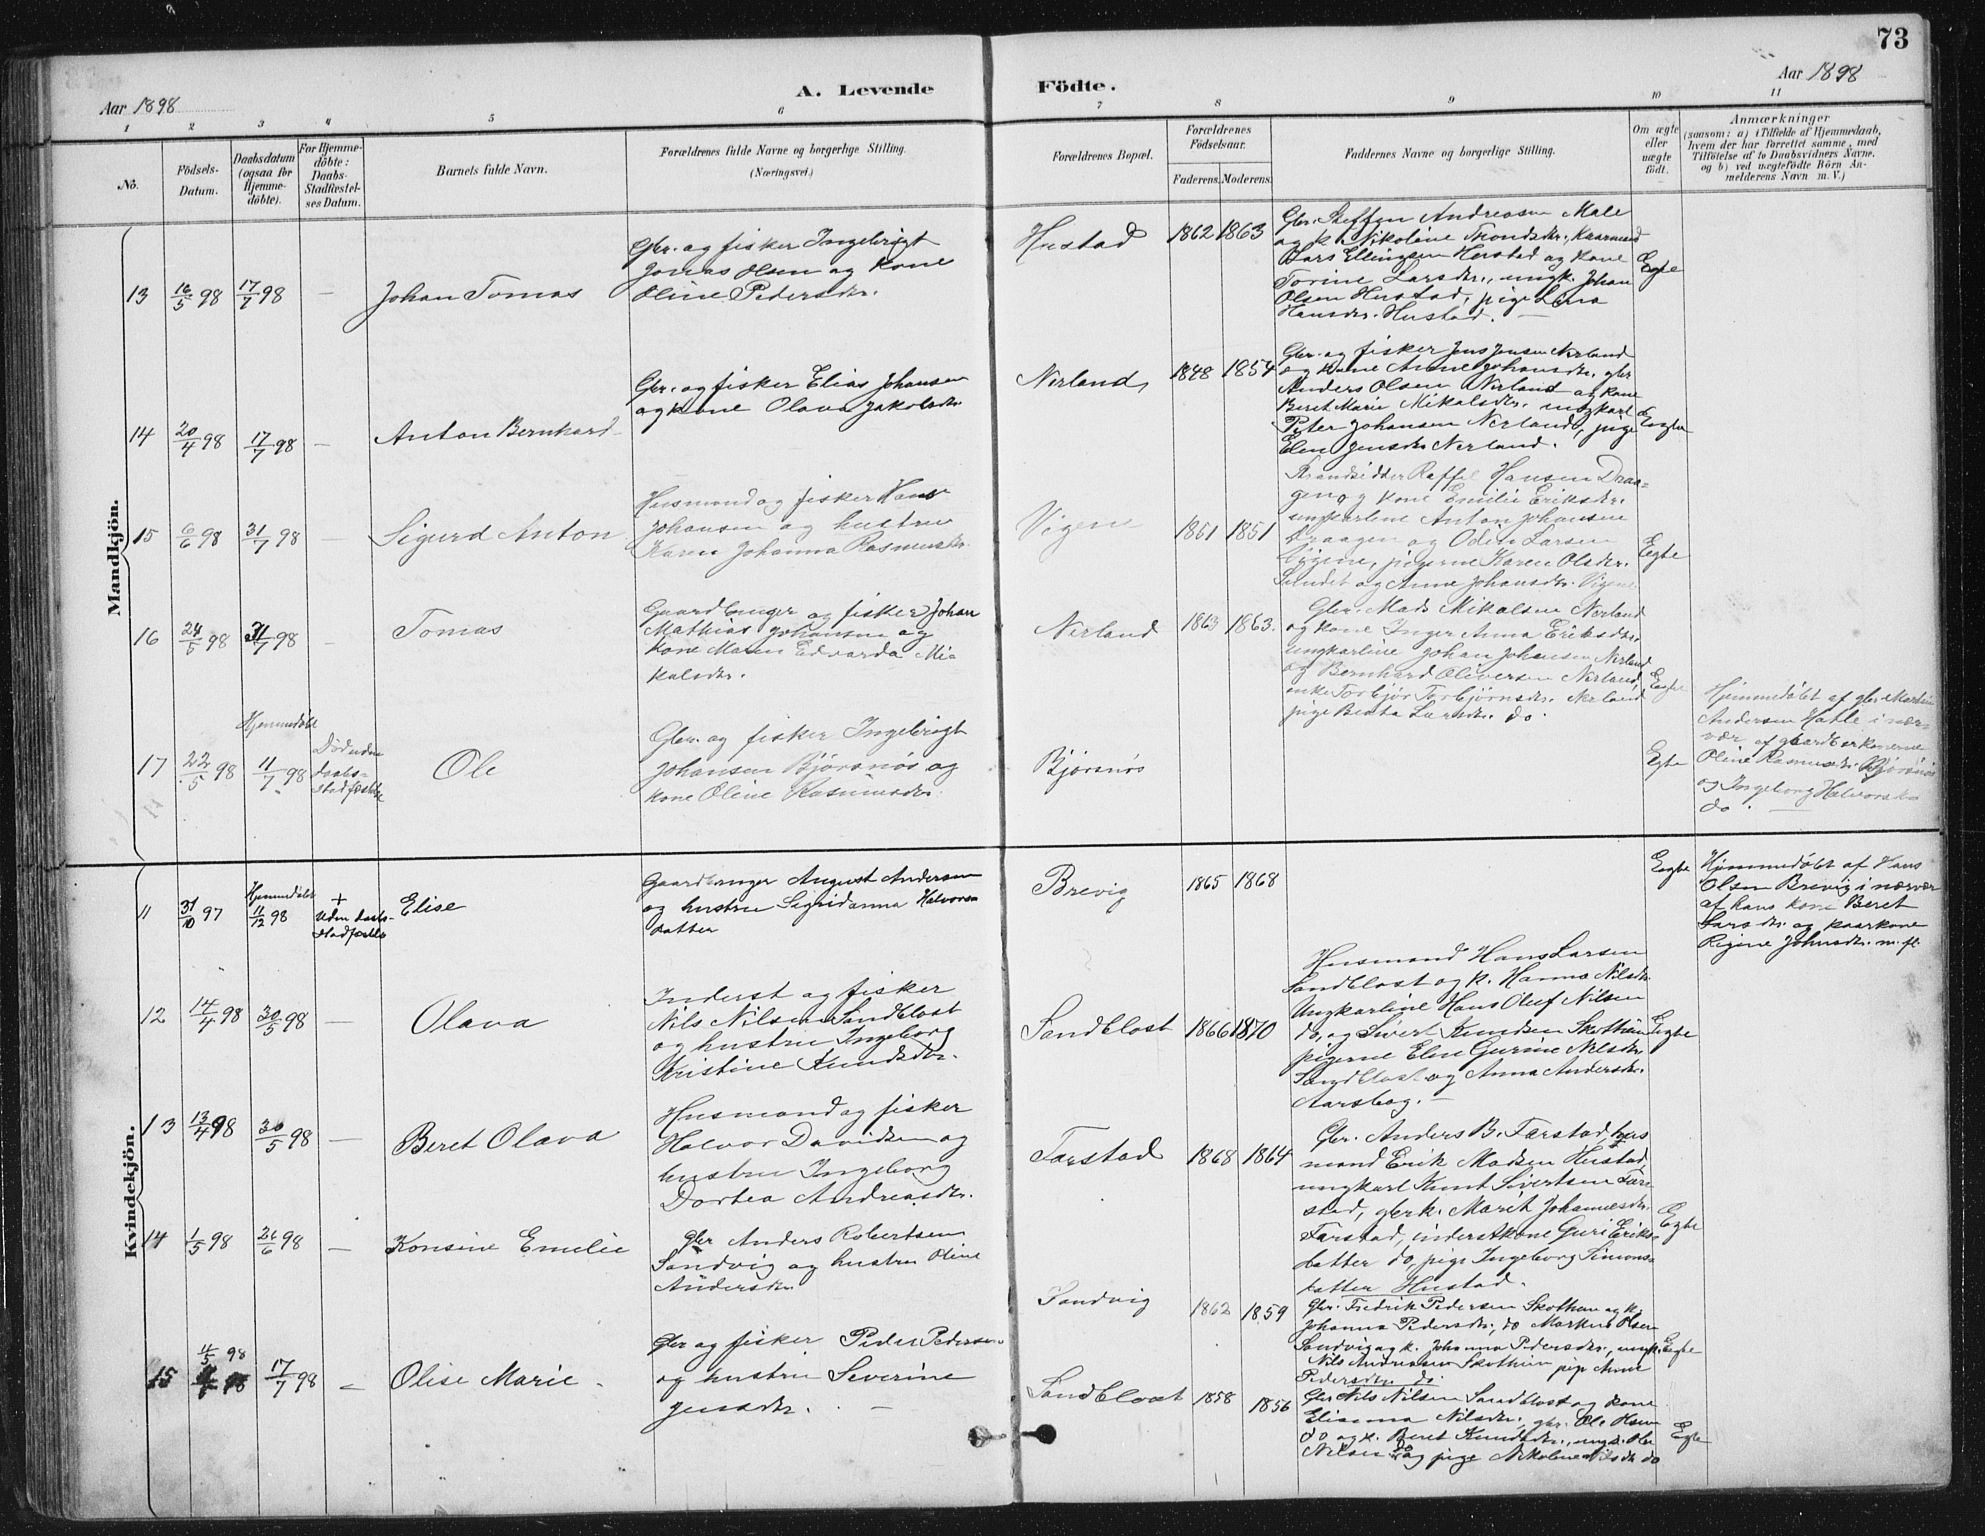 73
Aar 1898
A. Levende Födte.
Aar 1898
1 2 3 4 5 6 7 8 9 10 11
No.
Födsels-Datum.
Daabsdatum (ogsaa for Hjemme-döbte).
For Hjemme-döbte: Daabs-Stadfæstel-ses Datum.
Barnets fulde Navn.
Forældrenes fulde Navne og borgerlige Stilling.
(Næringsvei.)
Forældrenes Bopæl.
Forældrenes Födselsaar.
Faderens. Moderens.
Faddernes Navne og borgerlige Stilling.
Om ægte eller uægte födt.
Anmærkninger
(saasom: a) i Tilfælde af Hjemmedaab,
hvem der har forrettet samme, med
Tilföielse af to Daabsvidners Navne,
og b) ved uægtefödte Börn An-
melderens Navn m. V.)
Mandkjön.
13 16/5 98 17/7 98 — Johan Tomas
Gbr. og fisker Ingebrigt
Jonas Olsen og kone
Oline Pedersdtr.
Hustad 1862 1863
Gbr. Steffen Andreasen Male
og k. Nikoline Trondsdtr., Kaarmand
Lars Ellingsen Hustad og kone
Torine Larsdtr., ungk. Johan
Olsen Hustad, pige Lena
Hansdtr. Hustad. —
Egte
14 20/4 98 17/7 98 — Anton Bernhard
Gbr. og fisker Elias Johansen
og kone Olava Jakobsdtr.
Nerland 1848 1854
Gbr. og fisker Jens Jensen Nerland
og kone Anne Johansdtr. gbr
Anders Olsen Nerland og kone
Beret Marie Mikalsdtr. ungkarl
Peter Johansen Nerland, pige
Elen Jensdtr Nerland.
Eegte
15 6/6 98 31/7 98 — Sigurd Anton
Husmand og fisker Hans
Johansen og hustru
Karen Johanna Rasmusdtr.
Vigene 1861 1851
Strandsidder Raffel Hansen Draa-
gen og kone Emilie Eriksdtr.
ungkarlene Anton Johansen
Draagen og Odin Larsen
Vigene, pigerne Karen Olsdtr.
Sundet og Anne Johansdtr. Vigene
Eegte
16 24/5 98 31/7 98 — Tomas
Gaardbruger og fisker Johan
Mathias Johansen og
kone Maren Edvarda Mi-
kalsdtr.
Nerland 1863 1863.
Gbr. Mads Mikalsen Nerland
og kone Inger Anna Eriksdtr.
ungkarlene Johan Johansen Nerland
og Bernhard Oliversen Nerland
enke Torbjør Torbjørnsdtr. Nerland
pige Berta Larsdtr. do.
Eegte
17 22/5 98 Hjemmedøbt 11/7 98
Død uden
daabs-
stadfæstelse
Ole
Gbr. og fisker Ingebrigt
Johansen Bjørsnøs og
kone Oline Rasmusdtr.
Bjørsnøs
Egte
Hjemmedøbt af gbr Martin
Andersen Hatle i nær-
vær af gaardberkonerne
Oline Rasmusdtr. Bjørsnøs
og Ingeborg Halvorsdtr
do. —
Kvindekjön.
11 31/10 97 Hjemmedøbt 11/12 98
+
Uden daabs-
stadfæstelse
Elise
Gaardbruger August Andersen
og hustru Sigridanna Halvors-
datter
Brevig 1865 1868
Eegte
Hjemmedøbt af Hans
Olsen Brevig i nærvær
af hans kone Beret
Larsdtr. og kaarkone
Regine Johnsdtr. m. fl.
12 14/4 98 30/5 98 — Olava
Inderst og fisker
Nils Nilsen Sandblost
og hustru Ingeborg
Kristine Knudsdtr.
Sandblost 1866 1870
Husmand Hans Larsen
Sandblost og k. Hanna Nilsdtr.
Ungkarlene Hans Oluf Nilsen
do, og Sivert Knudsen Skothein
pigerne Elen Gurine Nilsdtr.
Sandblost og Anna Andersdtr.
Aarsbog. —
Eegte
13 13/4 98 30/5 98 — Beret Olava
Husmand og fisker
Halvor Davidsen og
hustru Ingeborg
Dortea Andreasdtr.
Farstad 1868 1864
Gbr. Anders B. Farstad, hus
mand Erik Madsen Hustad,
ungkarl Knut Sivertsen Far-
stad, gbrk. Marit Johannesdtr.
Farstad, inderstkone Guri Eriks-
datter do, pige Ingeborg Simons-
datter Hustad.
Egte
14 1/5 98 26/6 98 — Konsine Emelie
gbr Anders Robertsen
Sandvig og hustru Oline
Andersdtr.
Sandvig 1862 1859
Gbr. Fredrik Pedersen Skothein og k.
Johanna Pedersdtr., do Markus Olsen
Sandvig og k. Johanna Pedersdtr., ungk.
Nils Andreasen Skothein pige Anne
Pedersdtr do
Eegte
15 4/5 98 17/7 98 — Olise Marie
Gbr og fisker Peder Pedersen
og hustru Severine
Jensdtr. —
Sandblost 1858 1856
Gbr Nils Nilsen Sandblost og kone
Elisanna Nilsdtr., gbr. Ole Hansen
do og k. Beret Knudsdtr., ungk. Ole
Nilsen do og pige Nikoline Nilsdtr do
Egte